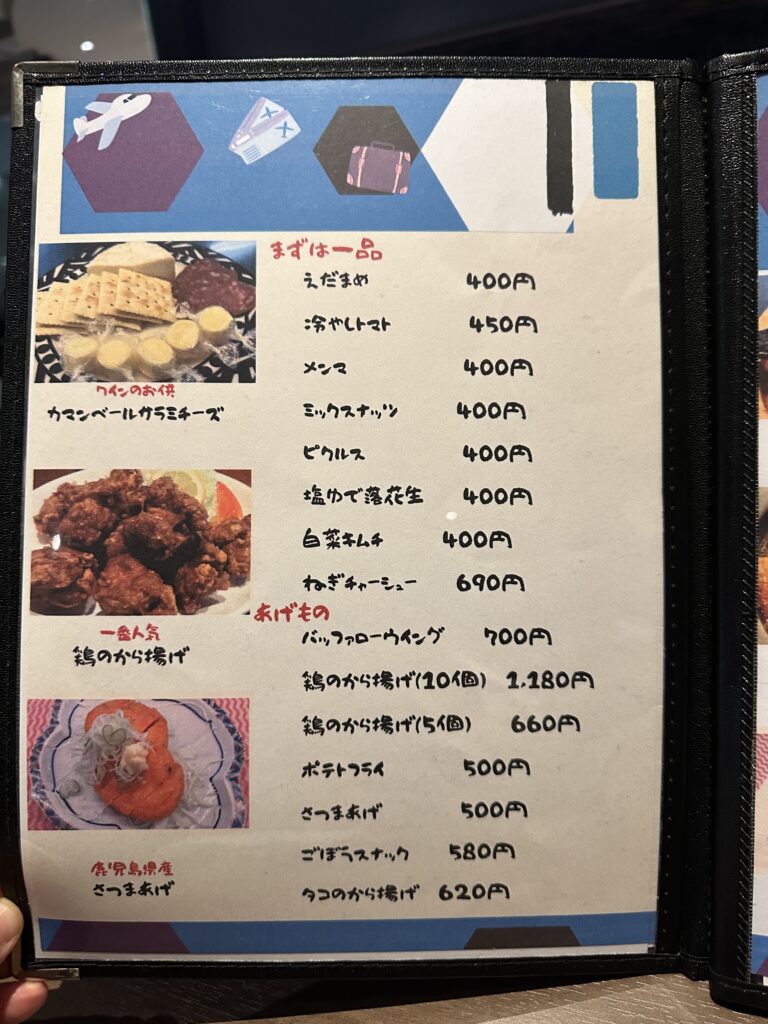 まずは一品
えだまめ 400円
冷やしトマト 450円
メンマ 400円
ミックスナッツ 400円
ピクルス 400円
塩ゆで落花生 400円
白菜キムチ 400円
ねぎチャーシュー 690円
あげもの
バッファローウイング 700円
鶏のから揚げ(10個) 1.180円
鶏のから揚げ(5個) 660円
ポテトフライ 500円
さつまあげ 500円
ごぼうスナック 580円
タコのから揚げ 620円
ワインのお供
カマンベールサラミチーズ
一番人気
鶏のから揚げ
鹿児島県産
さつまあげ